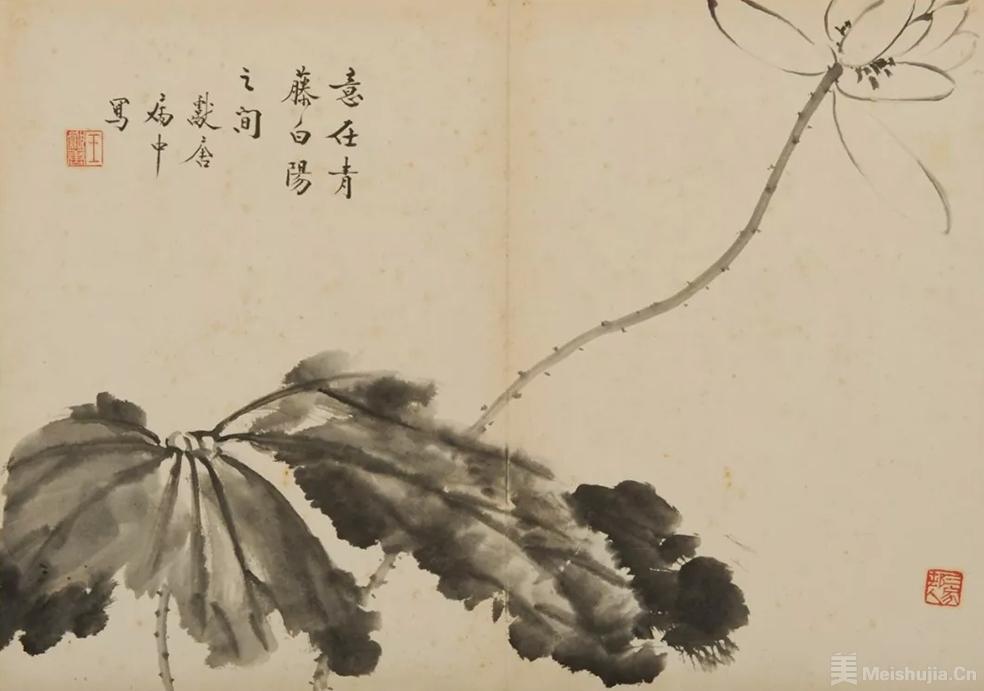 意在青
藤白陽
之间
獻唐
病中
寫
王
美 Meishujia.Cn